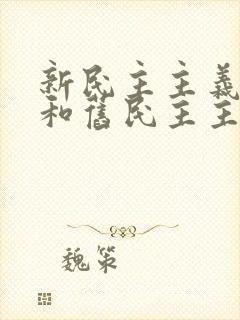 新民主主義
和舊民主主
魏策